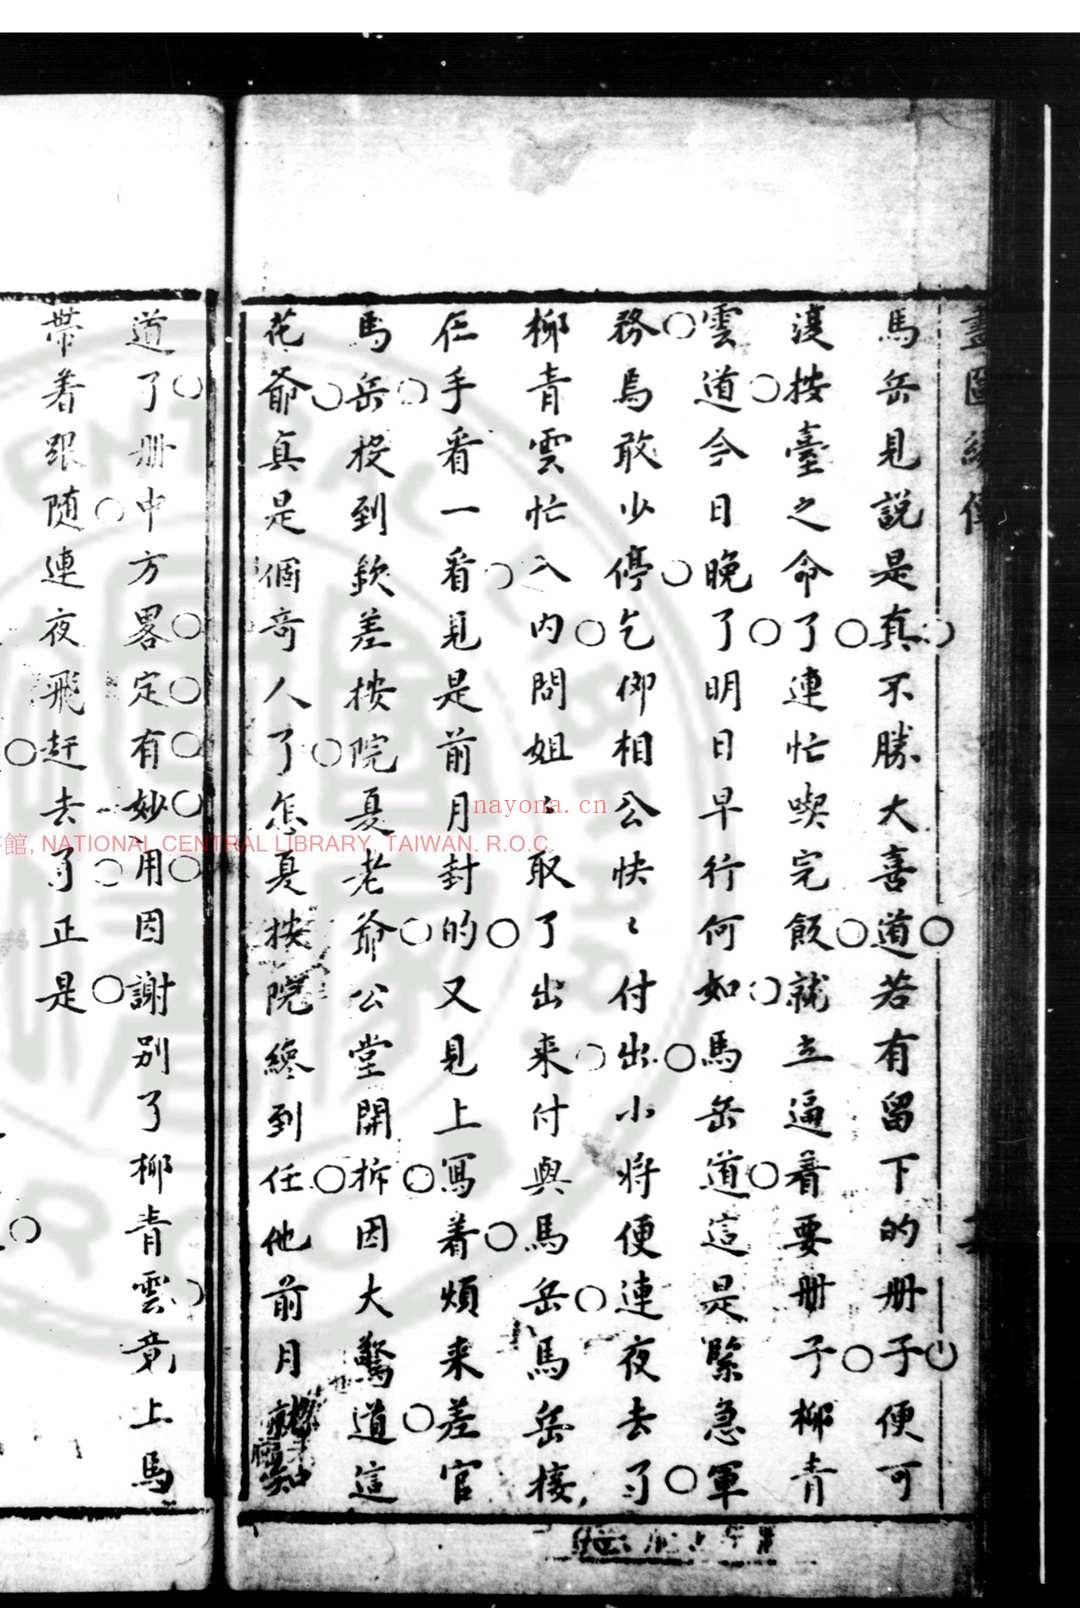 畫圖緣傳
馬岳見說是真不勝大喜道若有留下的册子便可
復按臺之命了連忙喫完飯就立逼着要册子柳青
雲道今日晚了明日早行何如馬岳道這是緊急軍
務焉敢少停乞仰相公快〻付出小將便連夜去了
柳青雲忙入内問姐〻取了出来付與馬岳馬岳接
在手看一看見是前月封的又見上寫着煩来差官
馬岳投到欽差按院夏老爺公堂開拆因大驚道這
花爺真是個竒人了怎夏按院纔到任他前月
道了册中方畧定有妙用因謝别了柳青雲竟上馬
帶着跟随連夜飛赶去了正是
nayona.cn
館, NATIONAL CENTRAL LIBRARY, TAIWAN. R.O.C.